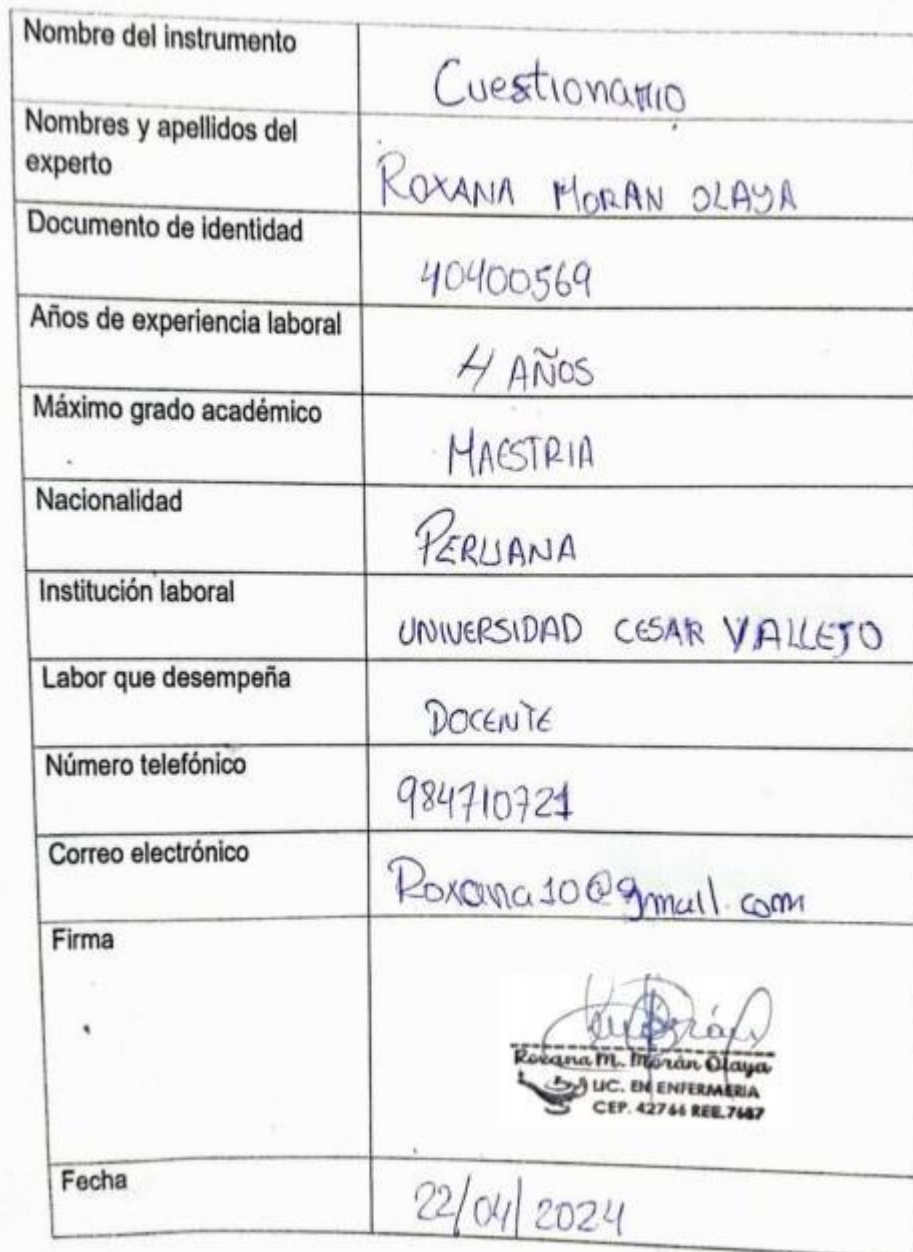 Nombre del instrumento
Cuestionario
Nombres y apellidos del
experto
ROXANA MORAN OLAYA
Documento de identidad
40400569
Años de experiencia laboral
4 AÑOS
Máximo grado académico
MAESTRIA
Nacionalidad
PERUANA
Institución laboral
UNIVERSIDAD CESAR VALLEJO
Labor que desempeña
DOCENTE
Número telefónico
984710721
Correo electrónico
Roxana10@gmail.com
Firma
Roxana M. Morán Olaya
LIC. EN ENFERMERIA
CEP. 42766 REE.7687
Fecha
22/04/2024